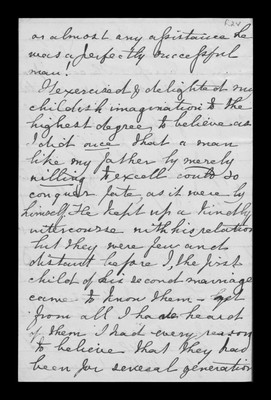 or almost any assistance he
was a perfectly successful
man.
It exercised & delighted my
childish imagination to the
highest degree to believe as
I did once that a man
like my father by merely
willing to excell could so
conquer fate as it were by
himself. He kept up a kindly
intercourse with his relations
but they were few and
distant before I, the first
child of his second marriage
came to know them — yet
from all I have heard
of them I had every reason
to believe that they had
been for several generations